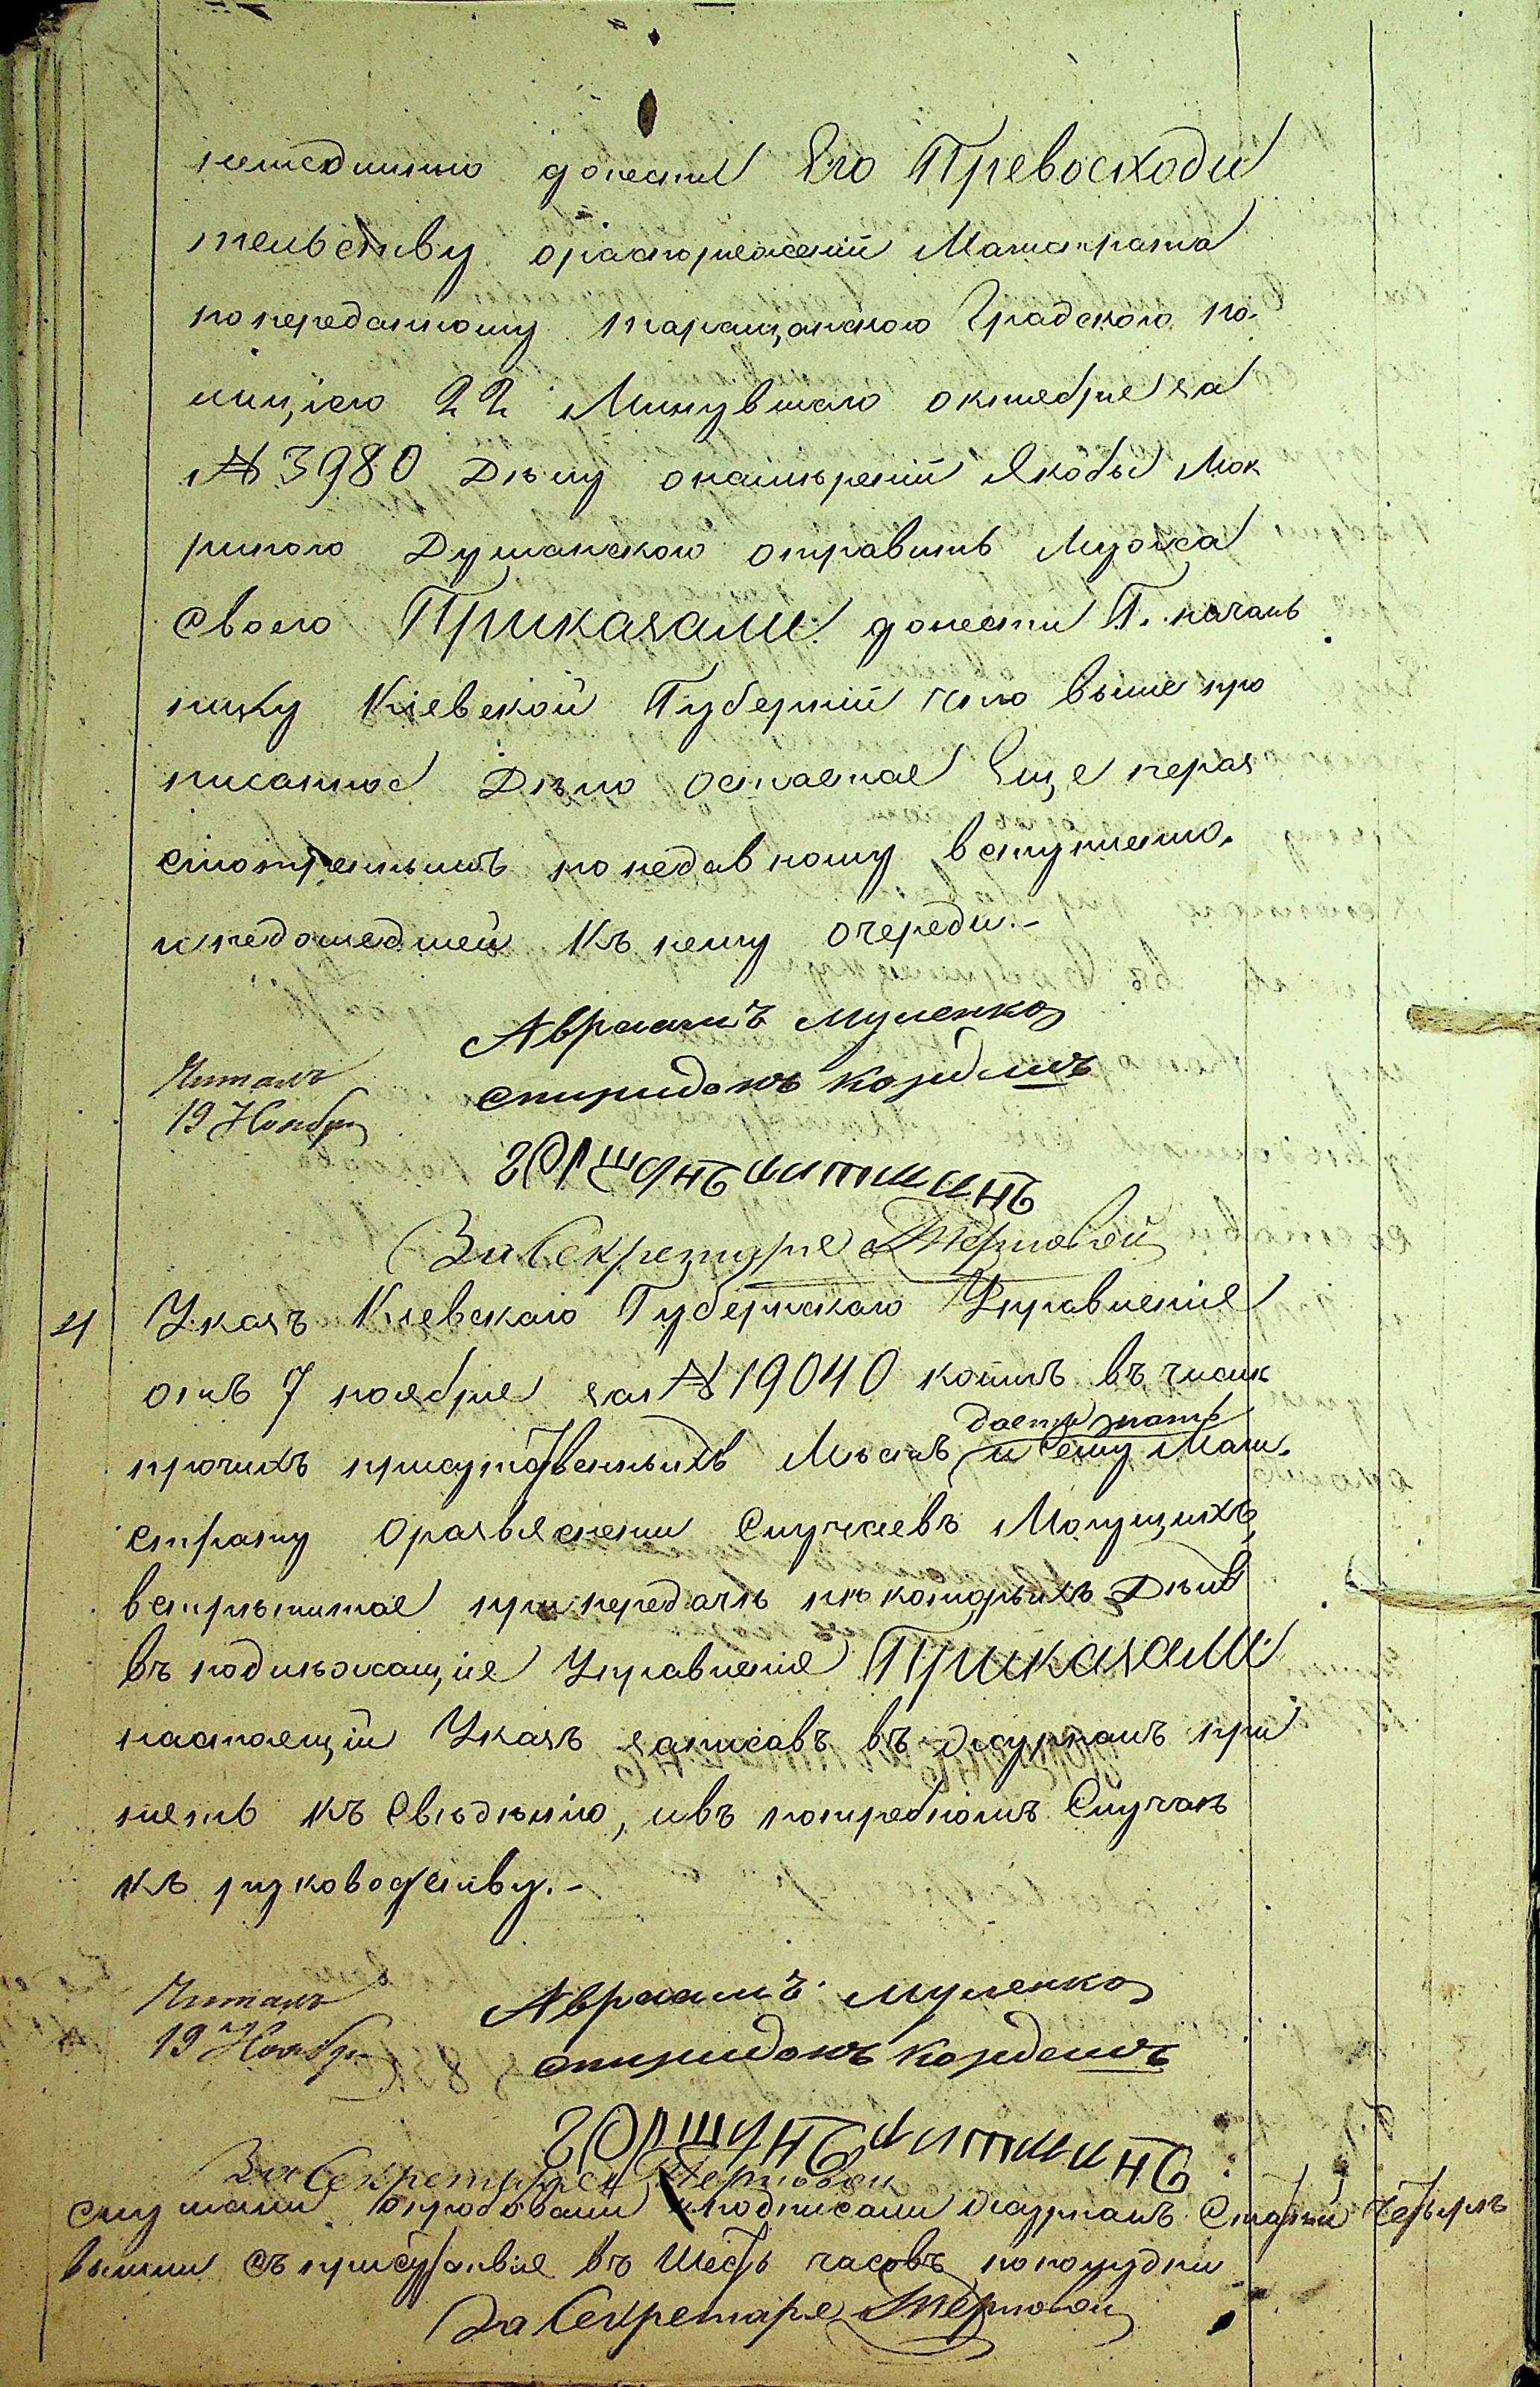 немедленно донести Его Превосходи
тельству ораспоряжении Магистрата
попереданному таращанскою Градскою по
лициею 22 Минувшаго октября за
№ 3980 Дѣлу онамѣрении Якобы Мок
риною Душанскою отравить Мужа
своего Приказали: донести Г. началь
нику Киевской Губернии что вышепро
писанное Дѣло остается Еще нераз
смотреннымъ понедавному вступлению
инедошедшей Къ нему очереди.-
Авраамъ Муленко
Спиридонъ Корделъ
Читалъ
19 Ноября
За Секретаря Терновой
4 Указъ Киевскаго Губернскаго Управления
отъ 7 ноября за № 19040 коимъ въ числѣ
прочихъ присутственныхъ Мѣстъ дается знать и сему Маги
страту оразъяснении Случаевъ Могущихъ
встрѣтится припередачѣ нѣкоторыхъ Дѣлъ
въ подлежащие Управления Приказали:
настоящий Указъ записавъ въ журналъ при
нять къ Свѣдѣнию, ивъ потребномъ Случаѣ
къ руководству.-
Читалъ
19 Ноября
Авраамъ Муленко
Спиридонъ Корделъ
За Секретаря Терновой
слушали иподписали журналъ Статей четыре
вышли съ присутствия въ Шесть часовъ пополудни
За Секретаря Терновой